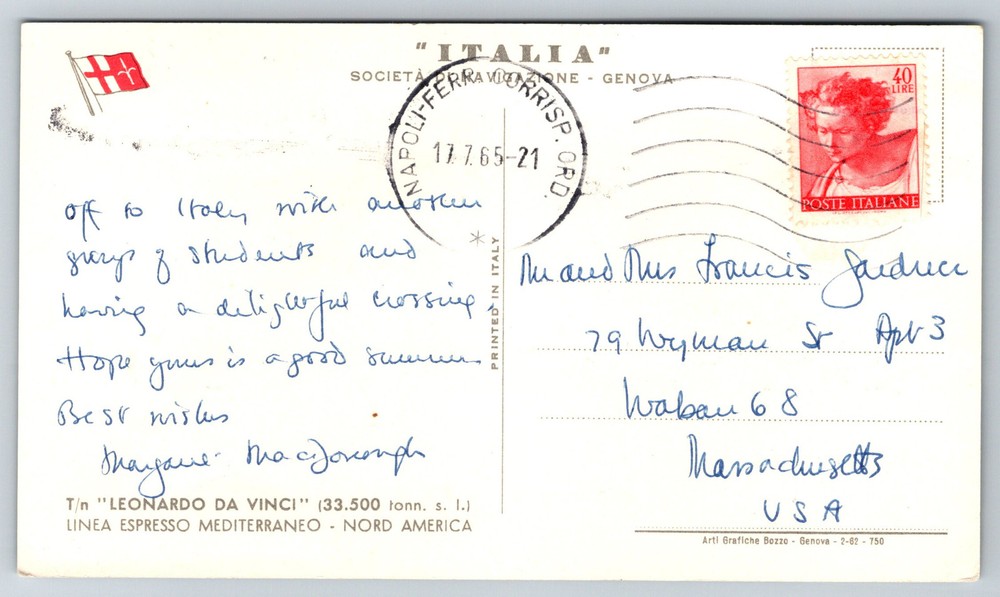 "ITALIA"
SOCIETÀ DI NAVIGAZIONE - GENOVA
NAPOLI-FERR. CORRISP. ORD.
17.7.65-21
40
LIRE
POSTE ITALIANE
off to Italy with another
group of students and
having a delightful crossing.
Hope yours is a good summer
Best wishes
MacDonough
T/n "LEONARDO DA VINCI" (33.500 tonn. s. l.)
LINEA ESPRESSO MEDITERRANEO - NORD AMERICA
PRINTED IN ITALY
Mr and Mrs Francis Gardner
79 Wyman St Apt 3
Waban 68
Massachusetts
USA
Arti Grafiche Bozzo - Genova - 2-62 - 750